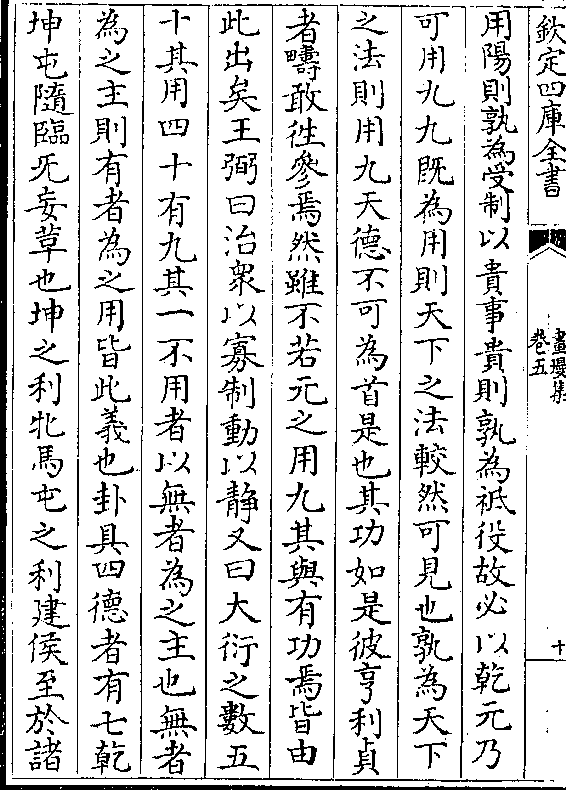 欽定四庫全書
畫墁集
卷五
十
用陽則孰為受制以貴事貴則孰為祗役故必以乾元乃
可用九九既為用則天下之法較然可見也孰為天下
之法則用九天德不可為首是也其功如是彼亨利貞
者疇敢徃參焉然雖不若元之用九其與有功焉皆由
此出矣王弼曰治衆以寡制動以靜又曰大衍之數五
十其用四十有九其一不用者以無者為之主也無者
為之主則有者為之用皆此義也卦具四德者有七乾
坤屯隨臨旡妄革也坤之利牝馬屯之利建侯至於諸